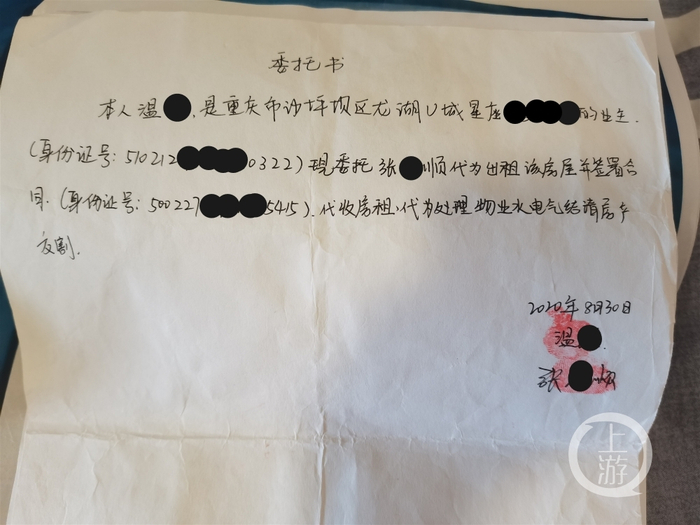 委托书
本人温●,是重庆市沙坪坝区龙湖U城星座●●●●的业主.
(身份证号:510212●●●●0322)现委托张●顺代为出租该房屋并签署合
同.(身份证号:500227●●●●5415).代收房租、代为处理物业水电气结清房产
交割.
2020年8月30日
温●.
张●顺
上游